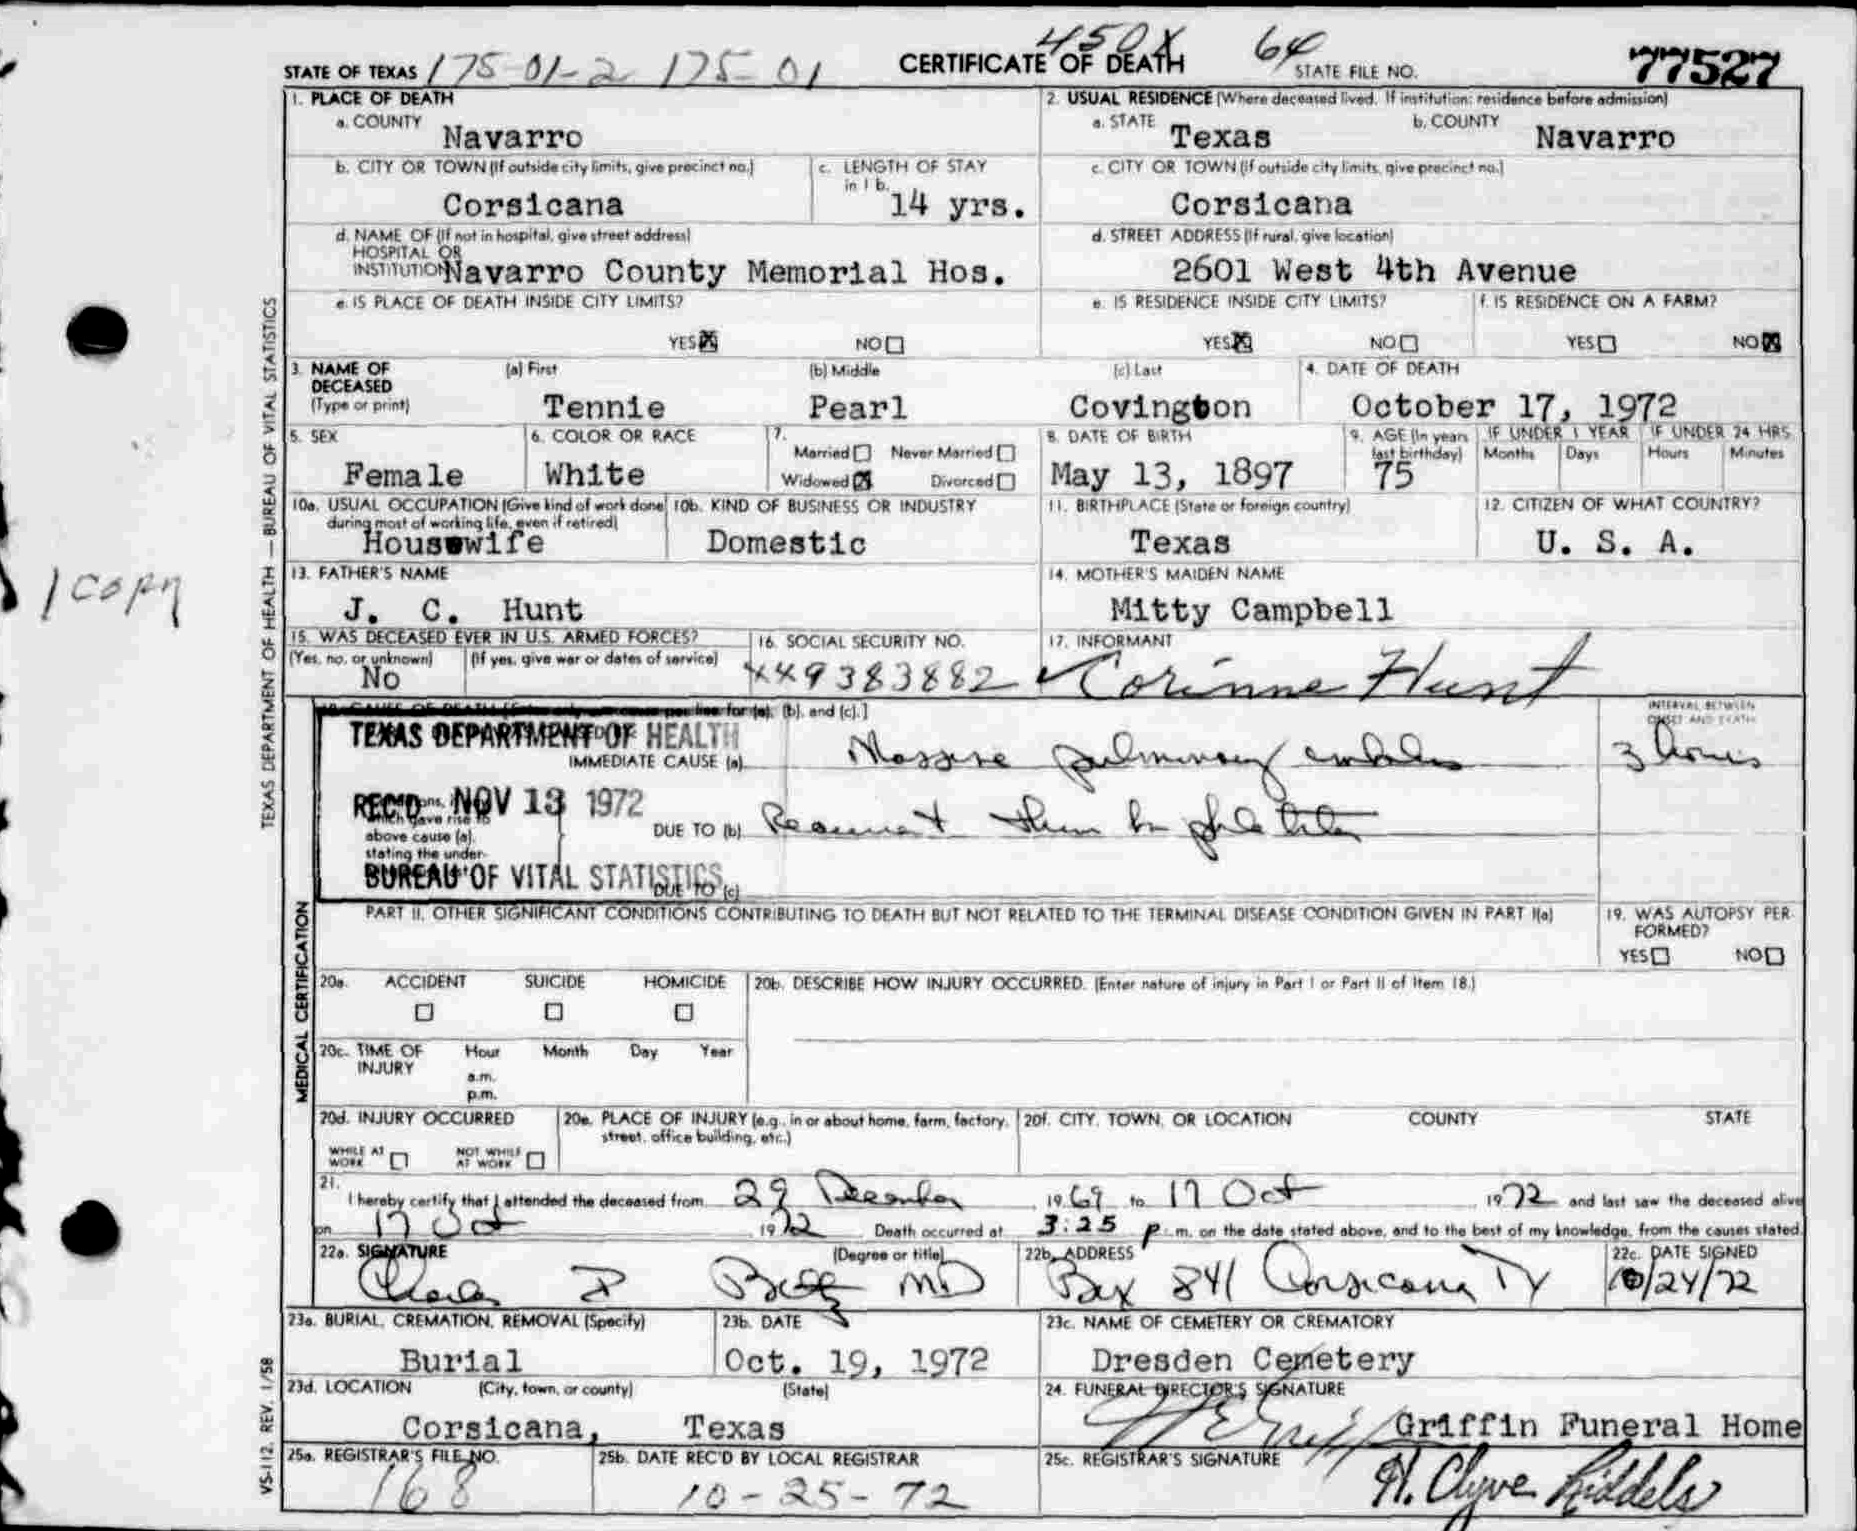 450X 64
STATE OF TEXAS 175-01-2 175-01 CERTIFICATE OF DEATH STATE FILE NO. 77527
1. PLACE OF DEATH
a. COUNTY Navarro
2. USUAL RESIDENCE (Where deceased lived. If institution: residence before admission)
a. STATE Texas b. COUNTY Navarro
b. CITY OR TOWN (If outside city limits, give precinct no.) Corsicana
c. LENGTH OF STAY in 1 b. 14 yrs.
c. CITY OR TOWN (If outside city limits, give precinct no.) Corsicana
d. NAME OF (If not in hospital, give street address)
HOSPITAL OR
INSTITUTION Navarro County Memorial Hos.
d. STREET ADDRESS (If rural, give location)
2601 West 4th Avenue
e. IS PLACE OF DEATH INSIDE CITY LIMITS?
YES☒ NO☐
e. IS RESIDENCE INSIDE CITY LIMITS?
YES☒ NO☐
f. IS RESIDENCE ON A FARM?
YES☐ NO☒
3. NAME OF DECEASED (Type or print)
(a) First Tennie
(b) Middle Pearl
(c) Last Covington
4. DATE OF DEATH
October 17, 1972
5. SEX
Female
6. COLOR OR RACE
White
7.
Married☐ Never Married☐
Widowed☒ Divorced☐
8. DATE OF BIRTH
May 13, 1897
9. AGE (In years last birthday)
75
IF UNDER 1 YEAR
Months Days
IF UNDER 24 HRS.
Hours Minutes
10a. USUAL OCCUPATION (Give kind of work done during most of working life, even if retired)
Housewife
10b. KIND OF BUSINESS OR INDUSTRY
Domestic
11. BIRTHPLACE (State or foreign country)
Texas
12. CITIZEN OF WHAT COUNTRY?
U. S. A.
13. FATHER'S NAME
J. C. Hunt
14. MOTHER'S MAIDEN NAME
Mitty Campbell
15. WAS DECEASED EVER IN U.S. ARMED FORCES?
(Yes, no, or unknown) (If yes, give war or dates of service)
No
16. SOCIAL SECURITY NO.
449383882
17. INFORMANT
Corinne Hunt
for (a), (b), and (c).]
INTERVAL BETWEEN
ONSET AND DEATH
TEXAS DEPARTMENT OF HEALTH
IMMEDIATE CAUSE (a) Massive pulmonary embolus 3 hours
REC'D NOV 13 1972
which gave rise to
above cause (a),
stating the under-
DUE TO (b) Recurrent thrombophlebitis
BUREAU OF VITAL STATISTICS
DUE TO (c)
PART II. OTHER SIGNIFICANT CONDITIONS CONTRIBUTING TO DEATH BUT NOT RELATED TO THE TERMINAL DISEASE CONDITION GIVEN IN PART I(a)
19. WAS AUTOPSY PERFORMED?
YES☐ NO☐
20a. ACCIDENT SUICIDE HOMICIDE
☐ ☐ ☐
20b. DESCRIBE HOW INJURY OCCURRED. (Enter nature of injury in Part I or Part II of Item 18.)
20c. TIME OF INJURY
Hour Month Day Year
a.m.
p.m.
20d. INJURY OCCURRED
WHILE AT WORK ☐ NOT WHILE AT WORK ☐
20e. PLACE OF INJURY (e.g., in or about home, farm, factory, street, office building, etc.)
20f. CITY, TOWN, OR LOCATION COUNTY STATE
21.
I hereby certify that I attended the deceased from 29 December 1969 to 17 Oct 1972 and last saw the deceased alive
on 17 Oct 1972 Death occurred at 3:25 p.m. on the date stated above, and to the best of my knowledge, from the causes stated.
22a. SIGNATURE (Degree or title)
Charles MD
22b. ADDRESS
Box 841 Corsicana TX
22c. DATE SIGNED
10/24/72
23a. BURIAL, CREMATION, REMOVAL (Specify)
Burial
23b. DATE
Oct. 19, 1972
23c. NAME OF CEMETERY OR CREMATORY
Dresden Cemetery
23d. LOCATION (City, town, or county) (State)
Corsicana, Texas
24. FUNERAL DIRECTOR'S SIGNATURE
Griffin Funeral Home
25a. REGISTRAR'S FILE NO.
168
25b. DATE REC'D BY LOCAL REGISTRAR
10-25-72
25c. REGISTRAR'S SIGNATURE
H. Clyve Riddels
TEXAS DEPARTMENT OF HEALTH — BUREAU OF VITAL STATISTICS
MEDICAL CERTIFICATION
VS-112, REV. 1/58
1 copy